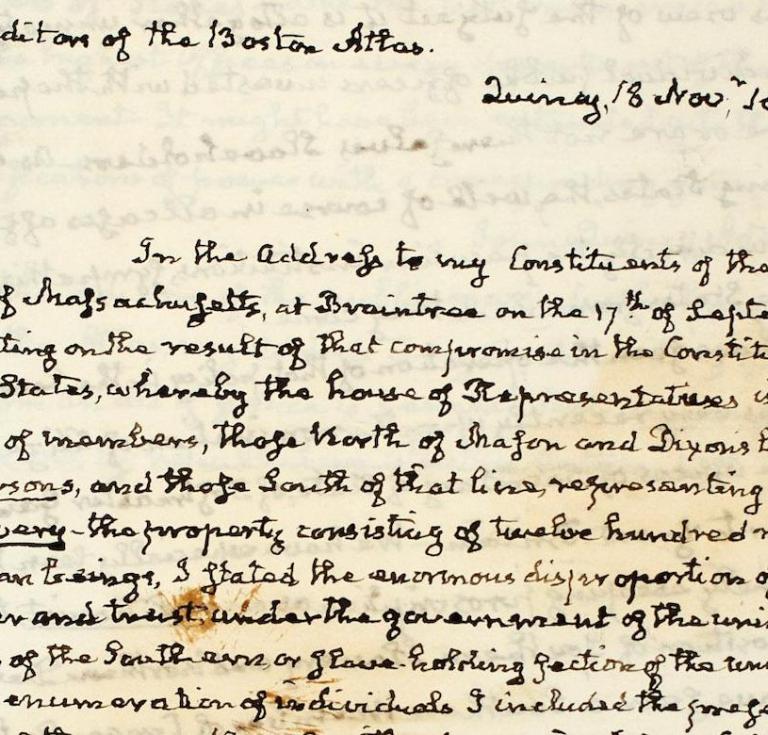 ditors of the Boston Atlas.
Quincy, 18 Nov.r 18
In the Address to my Constituents of the
of Massachusetts, at Braintree on the 17th of Septe
ting on the result of that compromise in the Constitu
States, whereby the house of Representatives is
of members, those North of Mason and Dixon's L
rsons, and those South of that line, representing
very - the property consisting of twelve hundred m
an beings, I stated the enormous disproportion of
er and trust, under the government of the uni
of the Southern, or slave-holding section of the uni
enumeration of individuals I included the prese